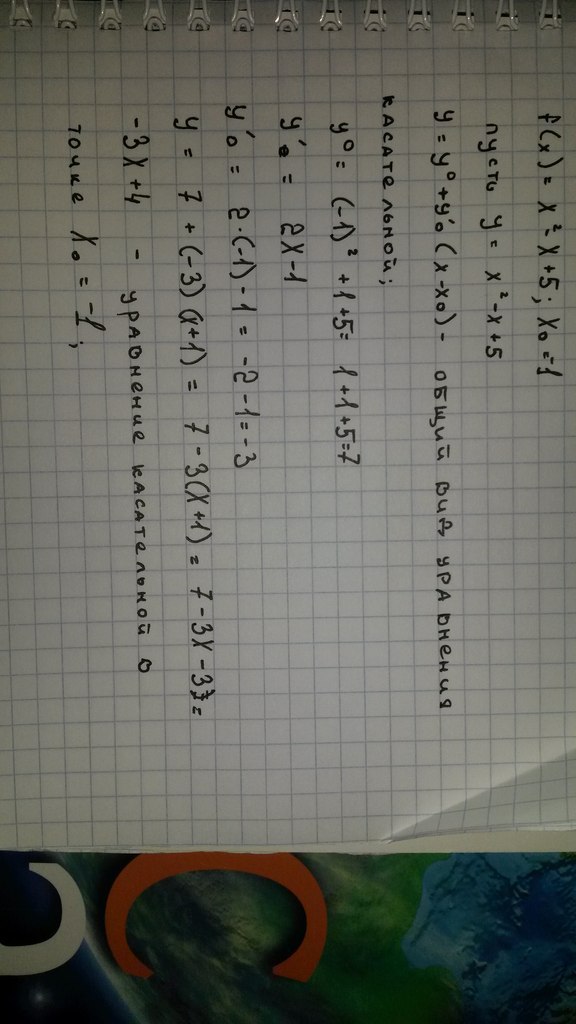 f(x) = x² x+5; x₀=-1
пусть y = x²-x+5
y = y⁰+y'₀(x-x₀)- общий вид уравнения
касательной;
y⁰= (-1)²+1+5= 1+1+5=7
y'₀ = 2x-1
y'₀ = 2·(-1)-1=-2-1=-3
y = 7+(-3)(x+1) = 7-3(x+1) = 7-3x-3=
-3x+4 - уравнение касательной в
точке x₀ = -1;